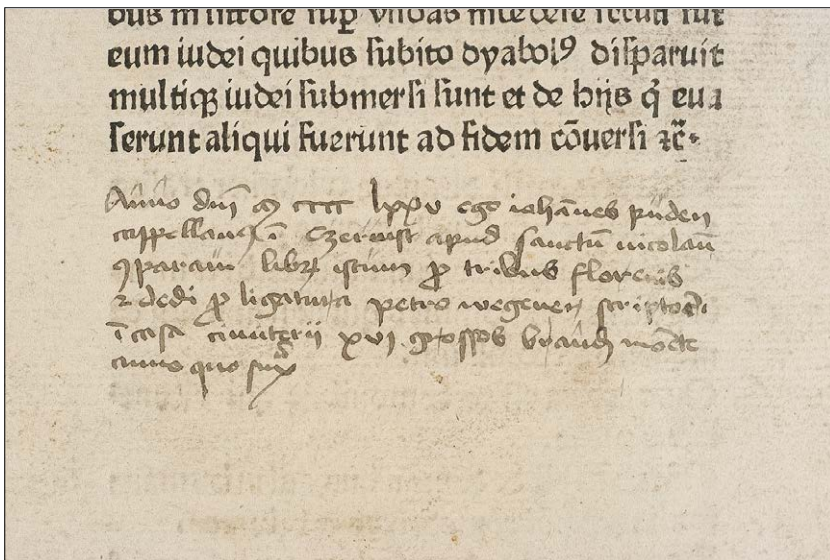 bus in littore sup̄ vndas incedere secuti sūt
eum iudei quibus subito dyabolꝰ disparuit
multiqꝫ iudei submersi sunt et de hijs q̇ eua
serunt aliqui fuerunt ad fidem cōuersi ⁊c̄.
Anno dnī M cccc lxxv ego iohānes
cappellanꝰ ī czerwist apud sanctū nicolaū
ꝯparaui librū istum ꝓ tribus florenis
⁊ dedi ꝓ ligatura petro wegener scriptori
ī casa cimiterii xvi grossos brandē monete
anno quo sup̄